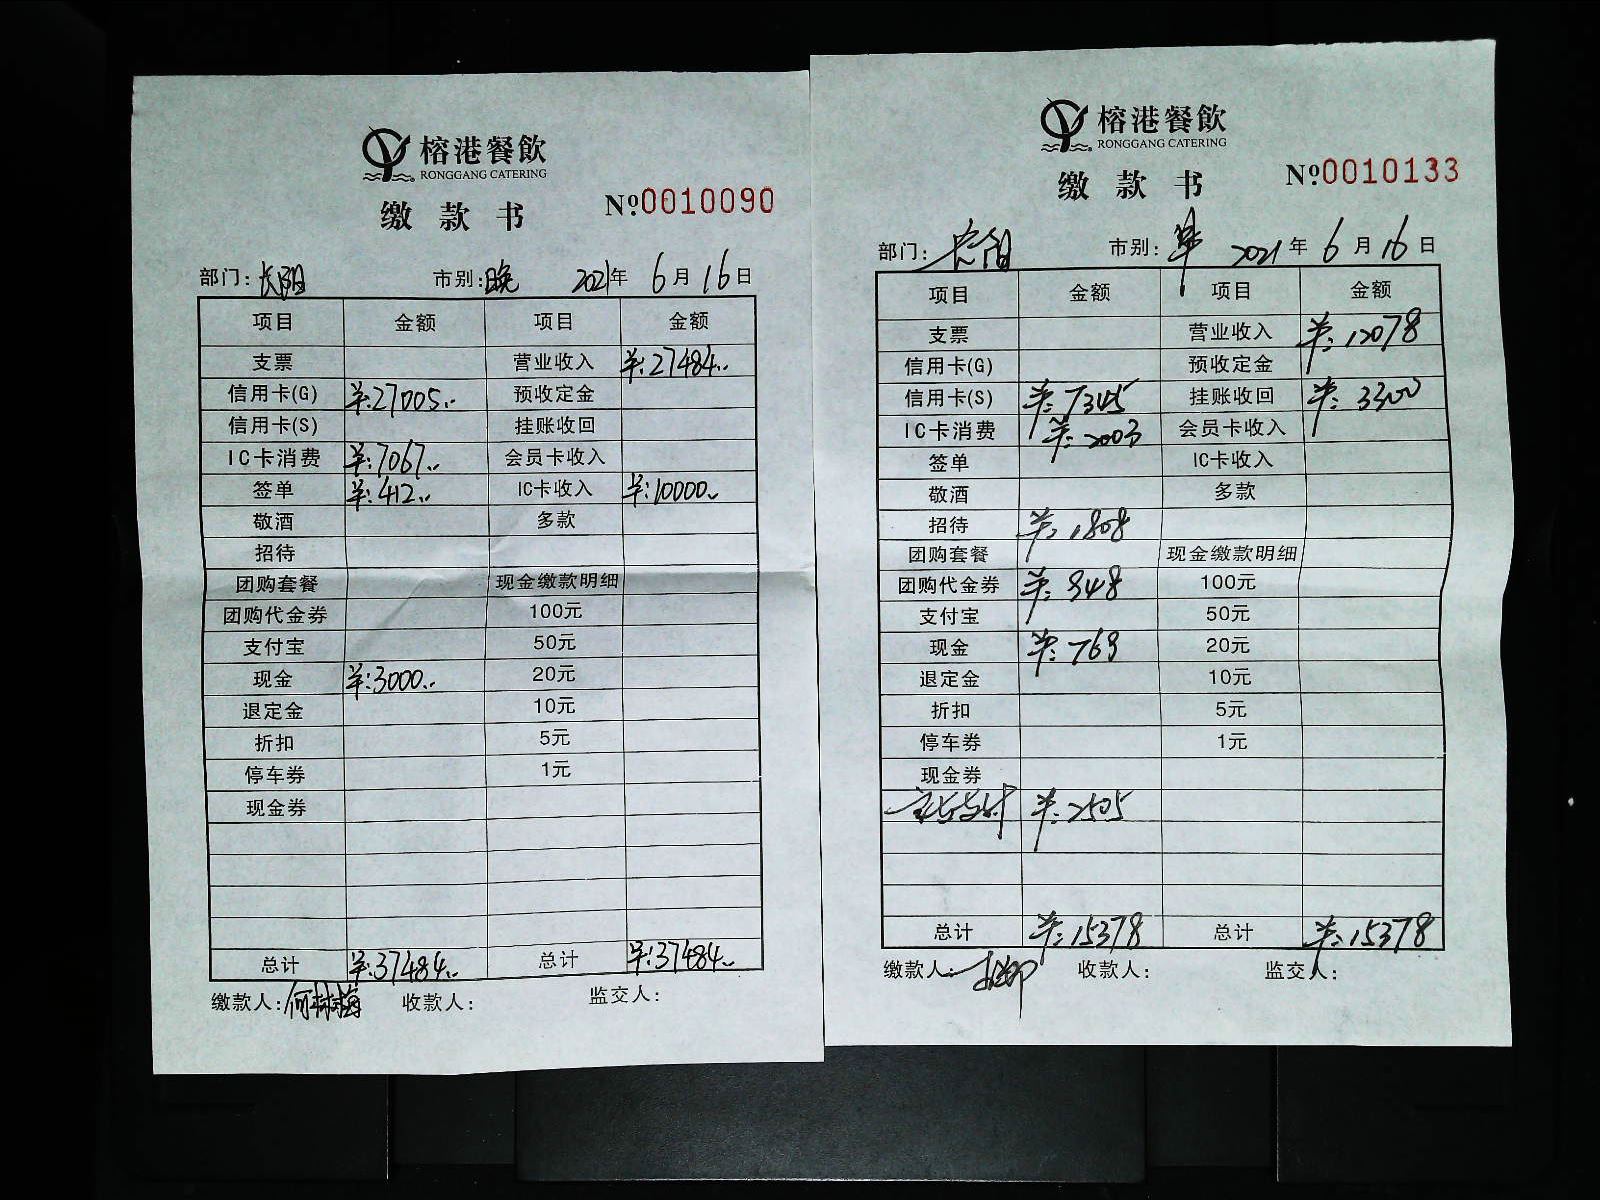 榕港餐飲
RONGGANG CATERING
缴款书
№0010090
部门:长阳 市别:晚 2021年6月16日
项目 金额 项目 金额
支票 营业收入 ¥:27484..
信用卡(G) ¥:27005.. 预收定金
信用卡(S) 挂账收回
IC卡消费 ¥:7067.. 会员卡收入
签单 ¥:412.. IC卡收入 ¥:10000..
敬酒 多款
招待
团购套餐 现金缴款明细
团购代金券 100元
支付宝 50元
现金 ¥:3000.. 20元
退定金 10元
折扣 5元
停车券 1元
现金券
总计 ¥:37484.. 总计 ¥:37484..
缴款人: 收款人: 监交人:
榕港餐飲
RONGGANG CATERING
缴款书
№0010133
部门: 市别: 2021年6月16日
项目 金额 项目 金额
支票 营业收入 ¥:12078
信用卡(G) 预收定金
信用卡(S) ¥:7345 挂账收回 ¥:3300
IC卡消费 ¥:2003 会员卡收入
签单 IC卡收入
敬酒 多款
招待 ¥:1808
团购套餐 现金缴款明细
团购代金券 ¥:948 100元
支付宝 50元
现金 ¥:769 20元
退定金 10元
折扣 5元
停车券 1元
现金券
¥:2505
总计 ¥:15378 总计 ¥:15378
缴款人: 收款人: 监交人: